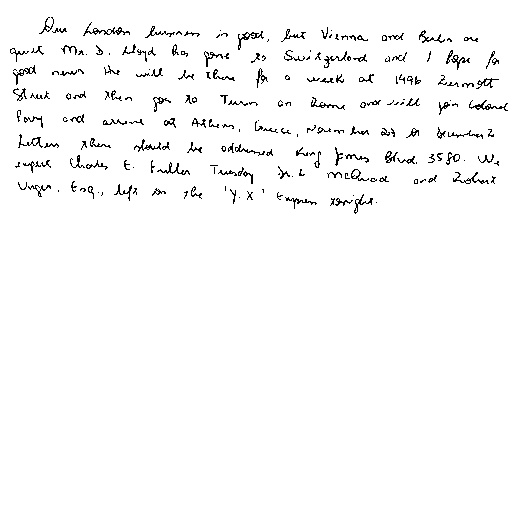 Our London business is good, but Vienna and Berlin are
quiet Mr. D. Lloyd has gone to Switzerland and I hope for
good news He will be there for a week at 1496 Zermott
Street and then goes to Turin an Rome and will join Colonel
Parry and arrive at Athens, Greece, November 27 or December 2
Letters there should be addressed King James Blvd. 3580. We
expect Charles E. Fuller Tuesday Dr. L McQuaid and Robert
Unger, Esq., left on the 'Y.X' Express tonight.